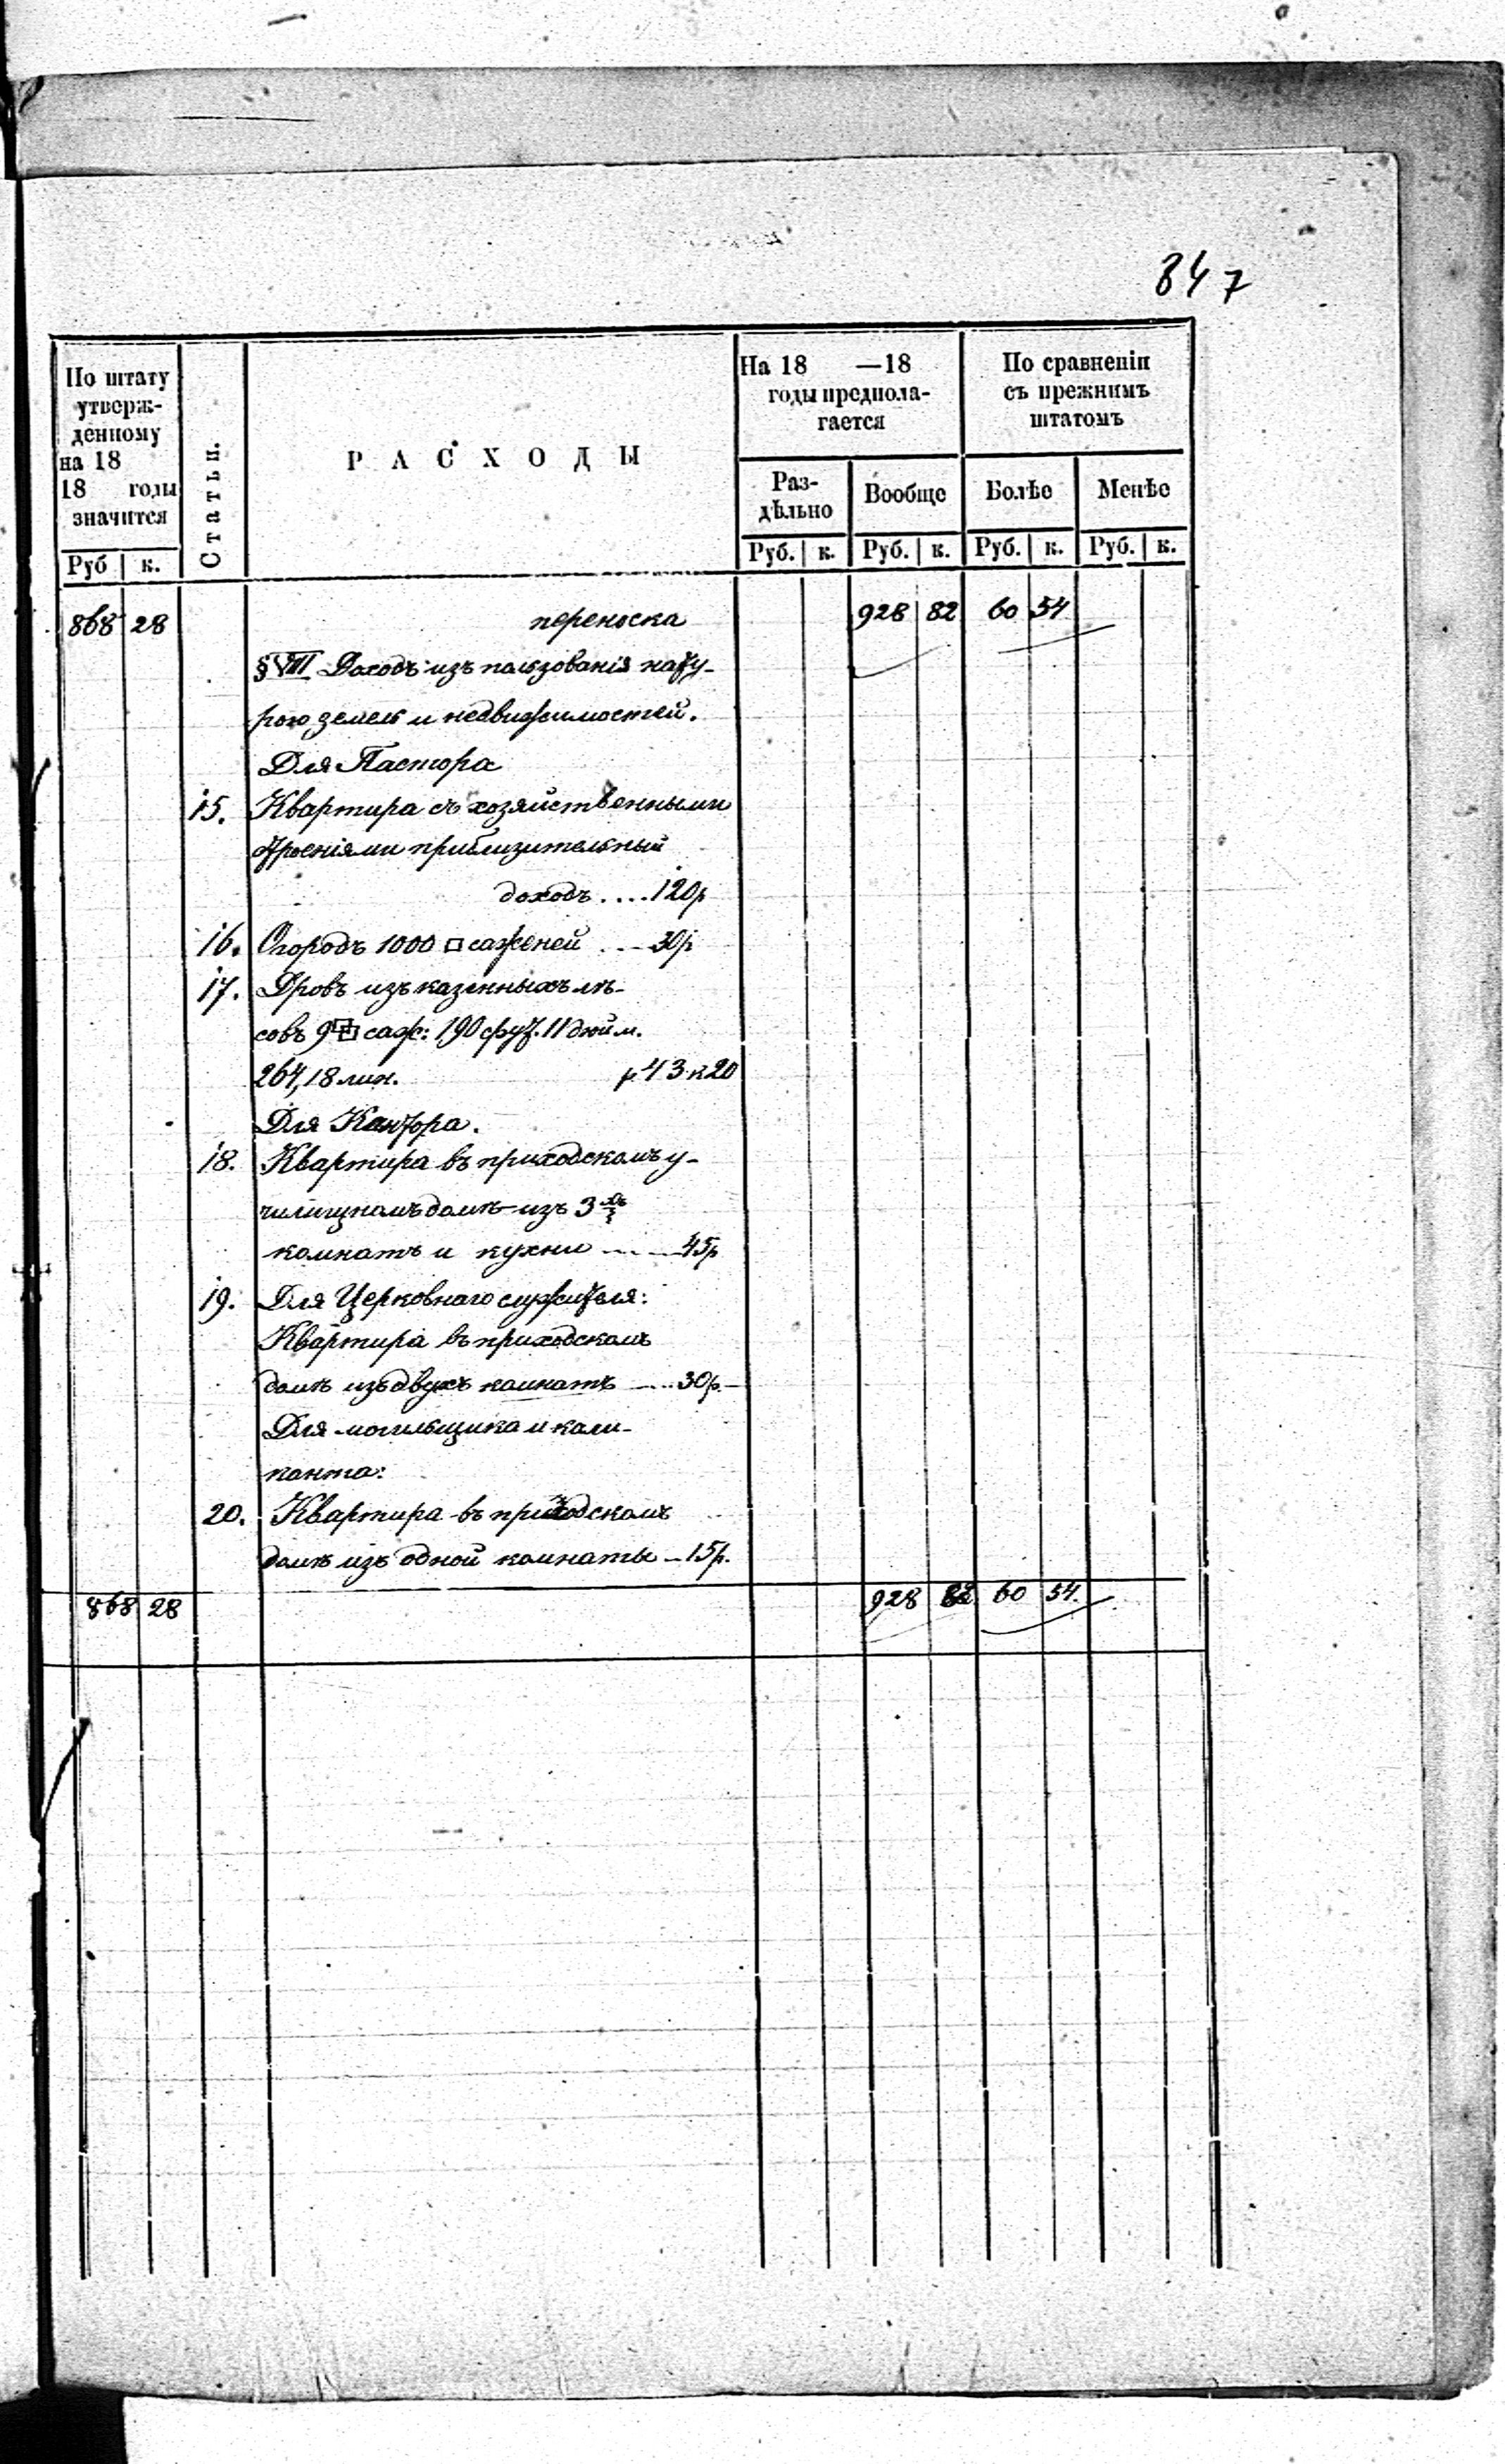 847
По штату
утверж-
денному
на 18
18 годы
значится
Статьи.
РАСХОДЫ
На 18 —18
годы предпола-
гается
По сравненіи
съ прежнимъ
штатомъ
Раз-
дѣльно
Вообще
Болѣе
Менѣе
Руб к.
Руб. к. Руб. к. Руб. к. Руб. к.
868 28 переноска 928 82 60 54
§ VIII Доходъ изъ пользованія нату-
рою земель и недвижимостей.
Для Пастора
15. Квартира съ хозяйственными
строеніями приблизительный
доходъ .... 120 р
16. Огородъ 1000 □ саженей ... 30 р
17. Дровъ изъ казенныхъ лѣ-
совъ 9 саж: 190 фут. 11 дюйм.
264,18 лин. р 43 к 20
Для Кантора.
18. Квартира въ приходскомъ у-
чилищномъ домѣ изъ 3хъ
комнатъ и кухни ... 45 р
19. Для Церковнаго служителя:
Квартира въ приходскомъ
домѣ изъ двухъ комнатъ .... 30 р.—
Для могильщика и каль-
канта:
20. Квартира въ приходскомъ
домѣ изъ одной комнаты — 15 р.
868 28 928 82 60 54.